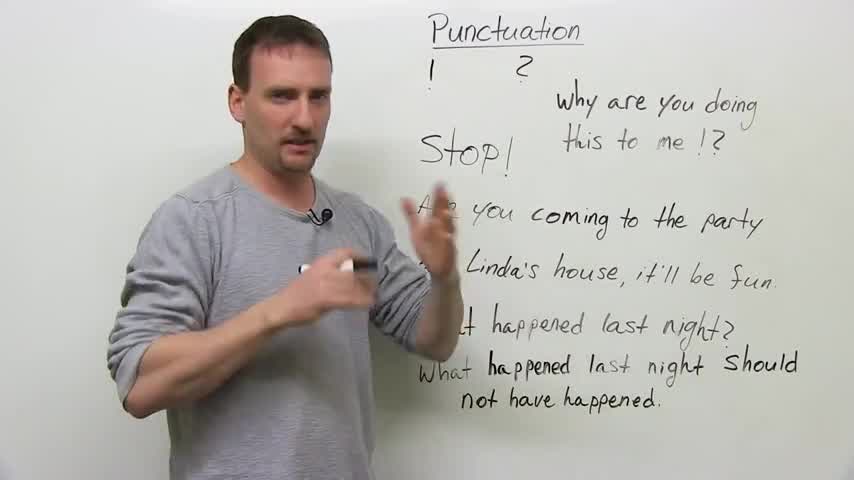 Punctuation
! ?
Why are you doing
this to me !?
Stop!
Are you coming to the party
Linda's house, it'll be fun.
happened last night?
What happened last night should
not have happened.